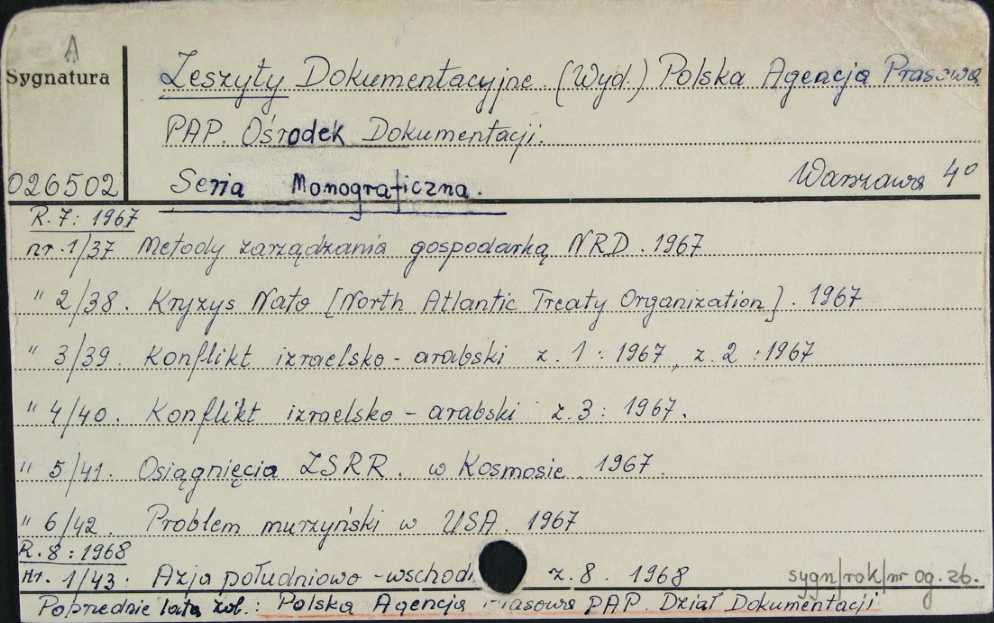 A
Sygnatura
Zeszyty Dokumentacyjne. (Wyd.) Polska Agencja Prasowa
PAP. Ośrodek Dokumentacji.
026502 Seria Monograficzna. Warszawa 4°
R. 7: 1967
nr. 1/37 Metody zarządzania gospodarką NRD. 1967
" 2/38. Kryzys Nato [North Atlantic Treaty Organization]. 1967
" 3/39. Konflikt izraelsko-arabski z. 1: 1967, z. 2: 1967
" 4/40. Konflikt izraelsko-arabski z. 3: 1967.
" 5/41. Osiągnięcia ZSRR. w Kosmosie. 1967.
" 6/42. Problem murzyński w USA. 1967
R. 8: 1968
nr. 1/43. Azja południowo-wschod z. 8. 1968 sygn/rok/nr og. zb.
Poprzednie lata zob.: Polska Agencja Prasowa PAP. Dział Dokumentacji